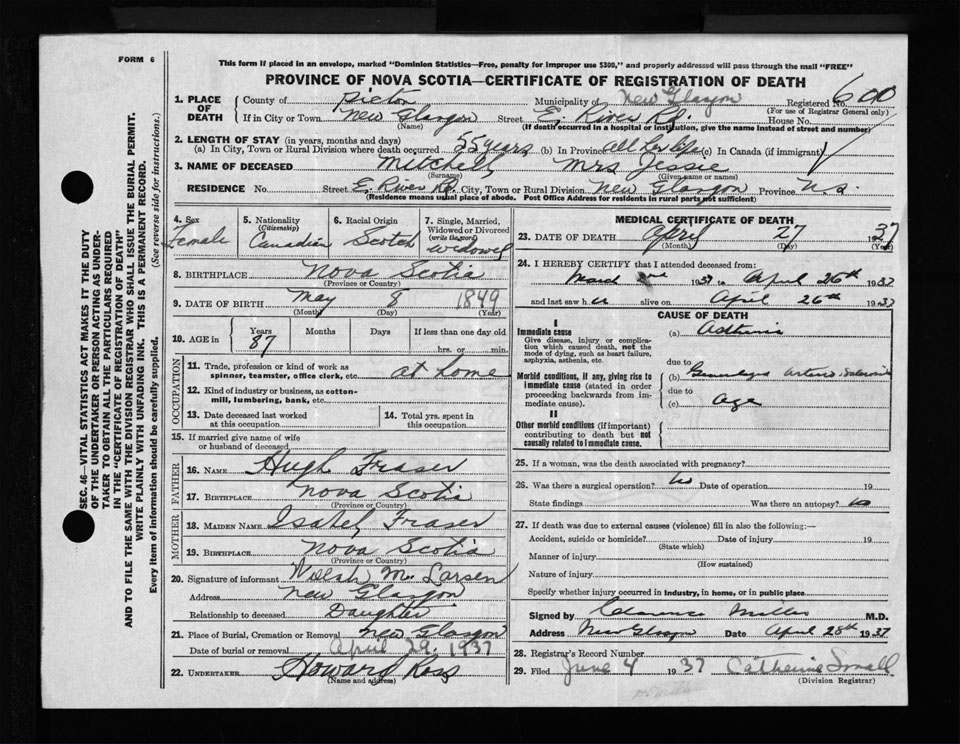 FORM 6
This form if placed in an envelope, marked "Dominion Statistics—Free, penalty for improper use $300," and properly addressed will pass through the mail "FREE"
PROVINCE OF NOVA SCOTIA—CERTIFICATE OF REGISTRATION OF DEATH
SEC. 46—VITAL STATISTICS ACT MAKES IT THE DUTY
OF THE UNDERTAKER OR PERSON ACTING AS UNDER-
TAKER TO OBTAIN ALL THE PARTICULARS REQUIRED
IN THE "CERTIFICATE OF REGISTRATION OF DEATH"
AND TO FILE THE SAME WITH THE DIVISION REGISTRAR WHO SHALL ISSUE THE BURIAL PERMIT.
WRITE PLAINLY WITH UNFADING INK. THIS IS A PERMANENT RECORD.
Every item of Information should be carefully supplied. (See reverse side for instructions.)
1. PLACE OF DEATH County of Pictou Municipality of New Glasgow Registered No. 600
(For use of Registrar General only)
If in City or Town New Glasgow Street E. River Rd. House No.
(Name) (If death occurred in a hospital or institution, give the name instead of street and number)
2. LENGTH OF STAY (in years, months and days)
(a) In City, Town or Rural Division where death occurred 55 years (b) In Province all her life (c) In Canada (if immigrant)
3. NAME OF DECEASED Mitchell, Mrs Jessie
(Surname) (Given name or names)
RESIDENCE No. Street E. River Rd. City, Town or Rural Division New Glasgow Province N.S.
(Residence means usual place of abode. Post Office Address for residents in rural parts not sufficient)
4. Sex Female
5. Nationality (Citizenship) Canadian
6. Racial Origin Scotch
7. Single, Married, Widowed or Divorced (write the word) widowed
8. BIRTHPLACE Nova Scotia
(Province or Country)
9. DATE OF BIRTH May 8 1849
(Month) (Day) (Year)
10. AGE in Years 87 Months Days If less than one day old
hrs. or min.
OCCUPATION
11. Trade, profession or kind of work as spinner, teamster, office clerk, etc. at home
12. Kind of industry or business, as cotton-mill, lumbering, bank, etc.
13. Date deceased last worked at this occupation
14. Total yrs. spent in this occupation
15. If married give name of wife or husband of deceased
FATHER
16. NAME Hugh Fraser
17. BIRTHPLACE Nova Scotia
(Province or Country)
MOTHER
18. MAIDEN NAME Isabel Fraser
19. BIRTHPLACE Nova Scotia
(Province or Country)
20. Signature of informant M. Larsen
Address New Glasgow
Relationship to deceased Daughter
21. Place of Burial, Cremation or Removal New Glasgow
Date of burial or removal April 29, 1937
22. UNDERTAKER Howard Ross
(Name and address)
MEDICAL CERTIFICATE OF DEATH
23. DATE OF DEATH April 27 1937
(Month) (Day) (Year)
24. I HEREBY CERTIFY that I attended deceased from:
March 1937 to April 26th 1937
and last saw her alive on April 26th 1937
CAUSE OF DEATH
I
Immediate cause
Give disease, injury or complication which caused death, not the mode of dying, such as heart failure, asphyxia, asthenia, etc.
(a) Asthenia
due to
Morbid conditions, if any, giving rise to immediate cause (stated in order proceeding backwards from immediate cause).
(b) Arterio-Sclerosis
due to
(c) Age
II
Other morbid conditions (if important) contributing to death but not causally related to immediate cause.
25. If a woman, was the death associated with pregnancy?
26. Was there a surgical operation? No Date of operation 19
State findings Was there an autopsy? No
27. If death was due to external causes (violence) fill in also the following:—
Accident, suicide or homicide? Date of injury 19
(State which)
Manner of injury
(How sustained)
Nature of injury
Specify whether injury occurred in industry, in home, or in public place
Signed by Clarence Miller M.D.
Address New Glasgow Date April 28th 1937
28. Registrar's Record Number
29. Filed June 4 1937 Catherine Small
(Division Registrar)